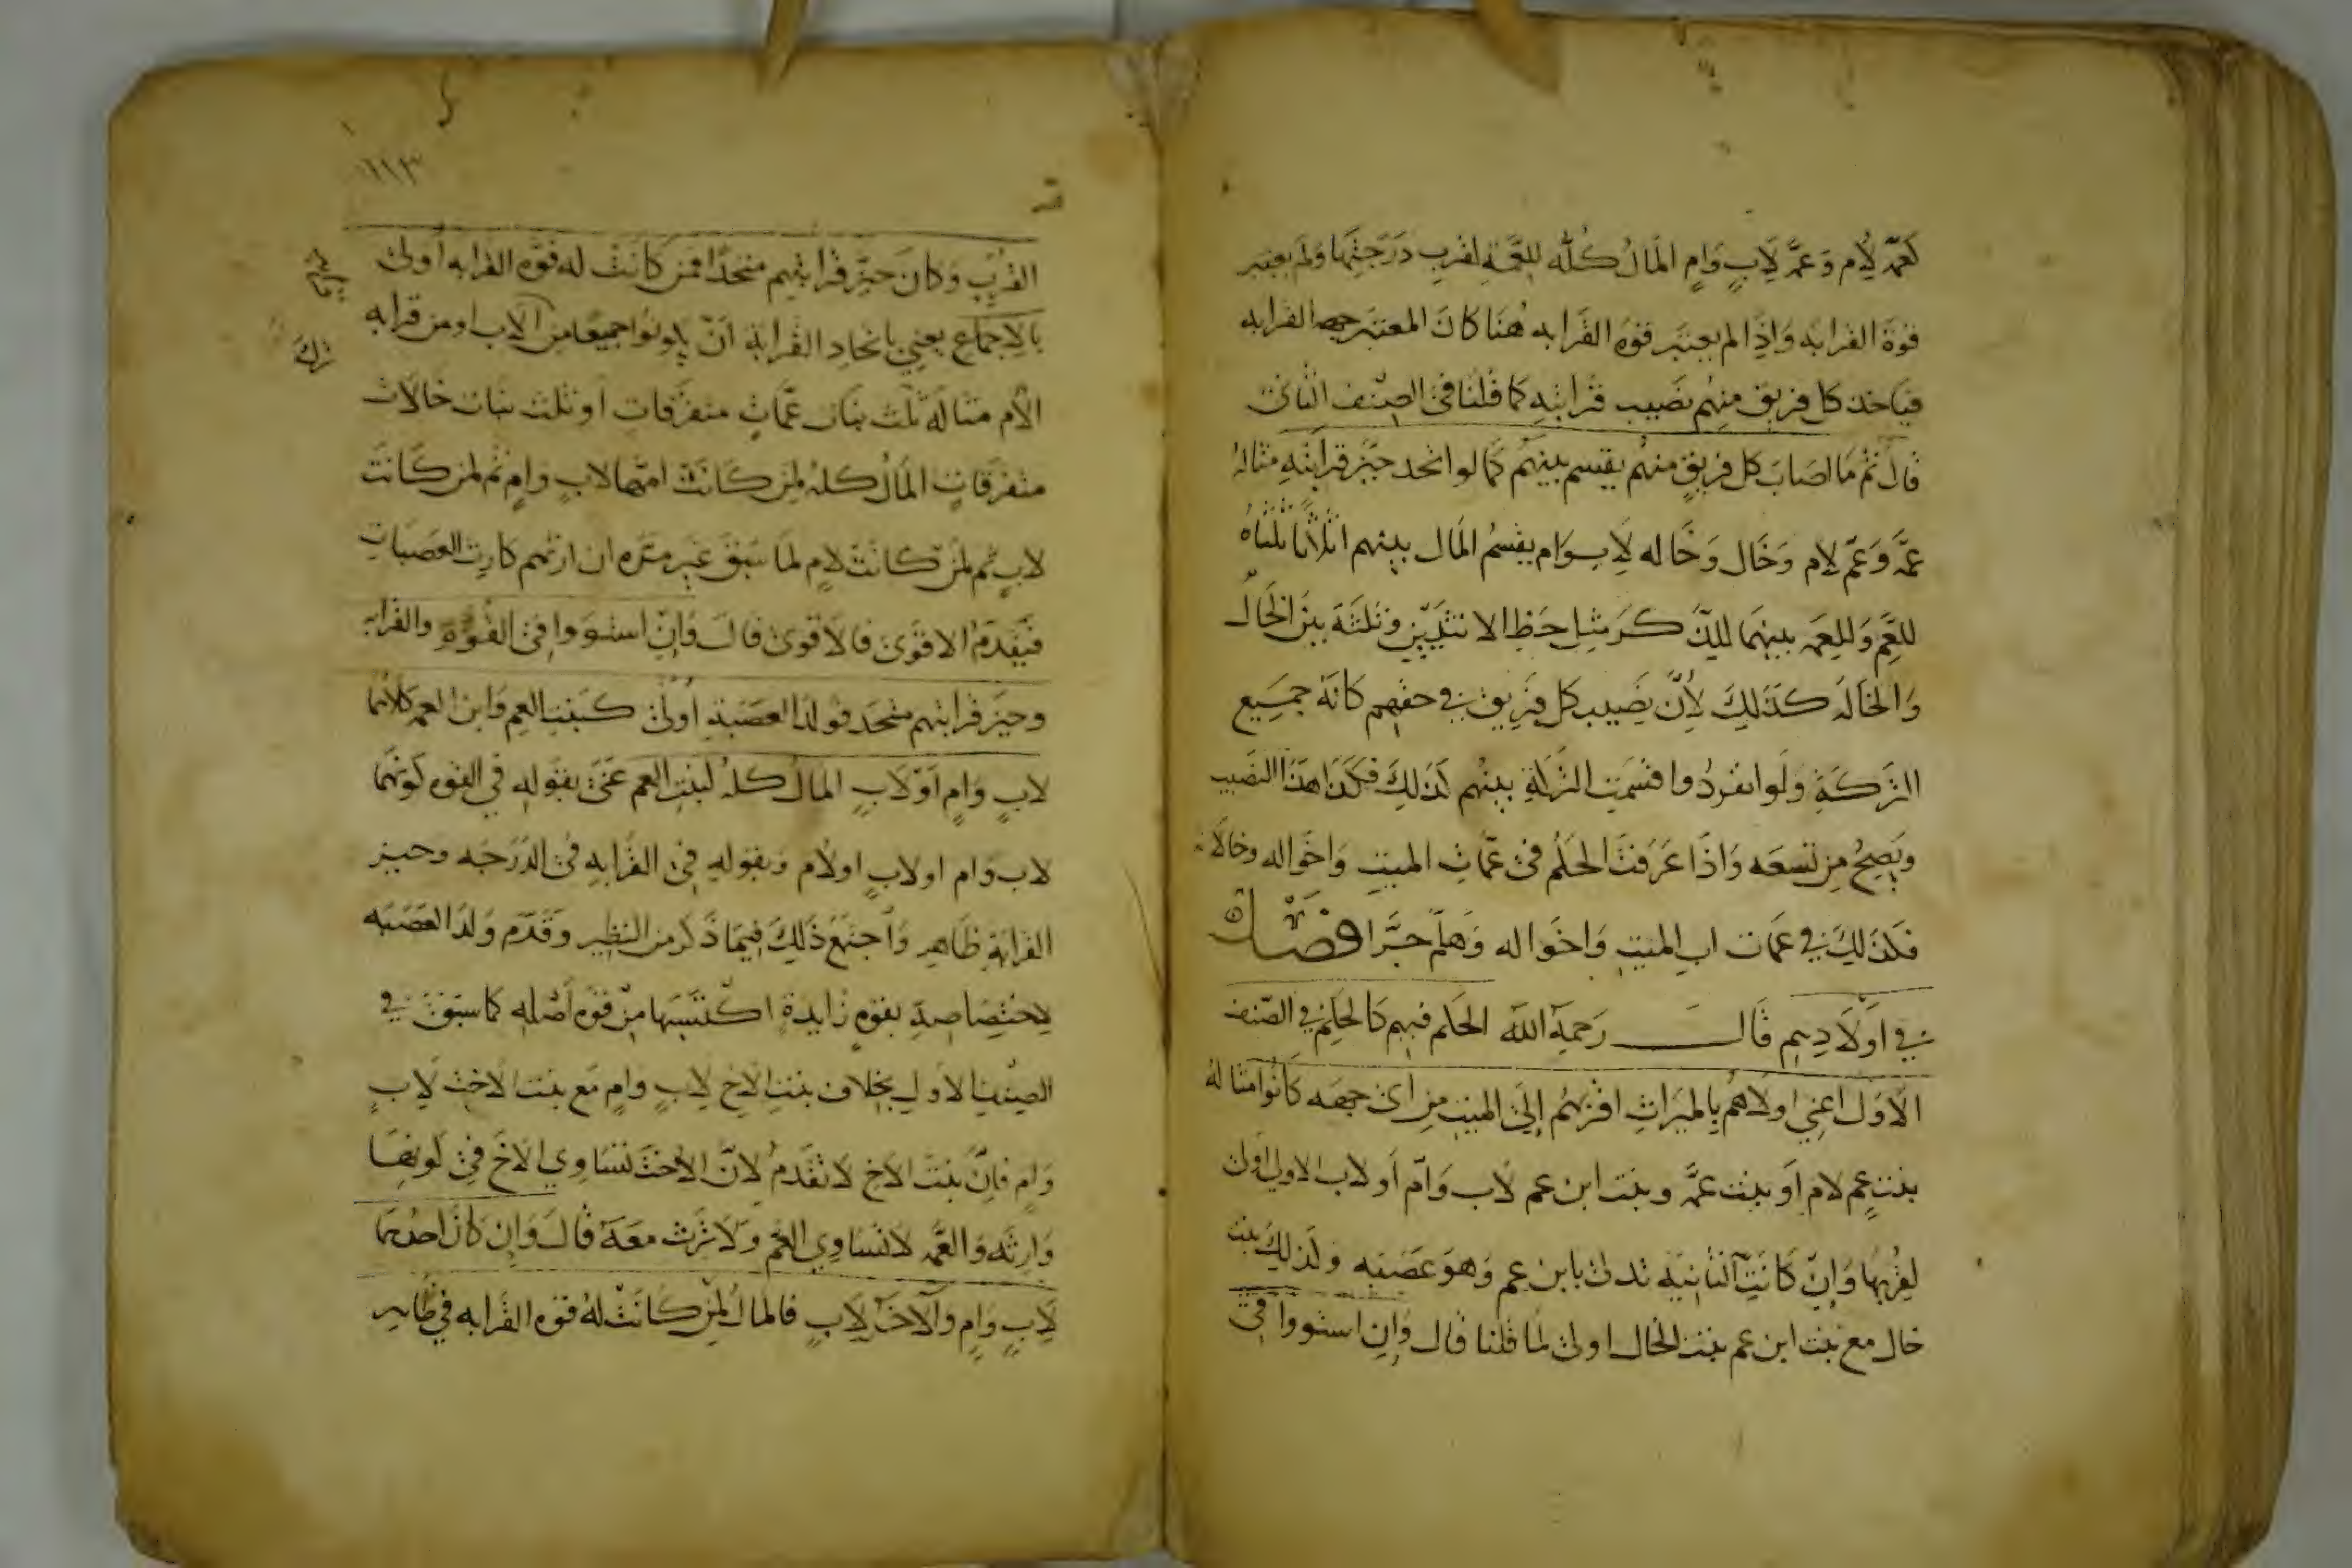 كعمّ لأم وعمّة لأبٍ وأمٍ المال كلّه للعمّة لقرب درجتها ولم يعتبر
قوة القرابه واذا لم يعتبر قوة القرابه هنا كان المعتبر جهه القرابه
فياخذ كل فريق منهم نصيب قرابته كما قلنا في الصنف الثاني
قال ثم ما اصاب كل فريق منهم يقسم بينهم كما لو اتحد حيز قرابته مثاله
عمّة وعمّ لام وخال وخاله لاب وام يقسم المال بينهم اثلاثا ثلثاه
للعم وللعمه بينهما للذكر مثل حظ الانثيين وثلثه بين الخال
والخاله كذلك لأن نصيب كل فريق في حقهم كانه جميع
التركة ولو انفردوا قسمت التركة بينهم كذلك فكذا هذا النصيب
ويصح من تسعه واذا عرفت الحكم في عمات الميت واخواله وخالاته
فكذلك في عمات اب الميت واخواله وهلم جرا فصل
في اولادهم قال رحمه الله الحكم فيهم كالحكم في الصنف
الاول اعني اولاهم بالميراث اقربهم إلى الميت من اي جهه كانوا مثاله
بنت عم لام او بنت عمّه وبنت ابن عم لاب وام أو لاب الاولى اولى
لقربها وإن كانت الثانية تدلى بابن عم وهو عصبه وكذلك بنت
خال مع بنت ابن عم بنت الخال اولى لما قلنا قال وإن استووا في
١١٣
القرب وكان حيز قرابتهم متحدا فمن كانت له قوة القرابه أولى
بالاجماع يعني باتحاد القرابة ان يكونوا جميعا من الاب او من قرابه
الأم مثاله ثلث بنات عمّاتٍ متفرقات او ثلث بنات خالات
متفرقات المال كله لمن كانت امها لاب وام ثم لمن كانت
لاب ثم لمن كانت لام لما سبق غير مره ان ارثهم كارث العصبات
فيقدم الاقوى فالاقوى قال وإن استووا في القوة والقرابه
وحيز قرابتهم متحد فولد العصبة أولى كبنت العم وابن العمه كلاهما
لاب وام أو لاب المال كله لبنت العم عنى بقوله في القوه كونهما
لاب وام او لاب او لام وبقوله في القرابه في الدرجه وحيز
القرابة ظاهر واجتمع ذلك فيما ذكر من النظير وقدم ولد العصبه
لاختصاصه بقوة زايدة اكتسبها من قوه أصله كما سبق في
الصنف الاول بخلاف بنت الاخ لاب وام مع بنت الاخت لاب
وام فإن بنت الاخ لا تقدم لان الاخت تساوي الاخ في كونها
وارثه والعمه لا تساوي العم ولا ترث معه قال وإن كان احدهما
لاب وام والآخر لاب فالمال لمن كانت له قوة القرابه في ظاهر